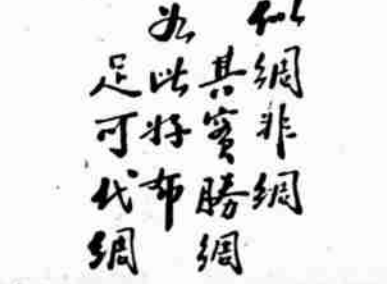 似綢非綢
其實勝綢
如此好布
足可代綢